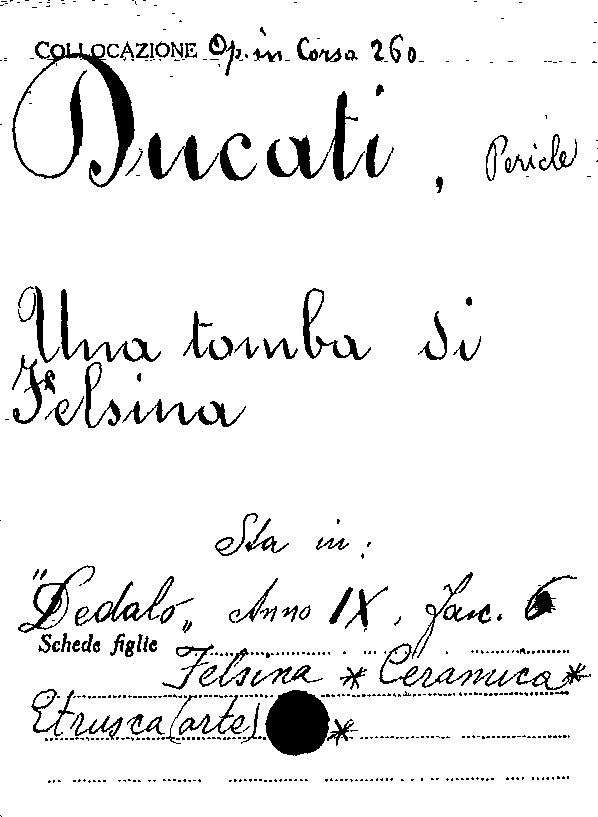 COLLOCAZIONE Op. in Corso 260
Ducati, Pericle
Una tomba di
Felsina
Sta in:
"Dedalo„ Anno IX, Fasc. 6
Schede figlie
Felsina * Ceramica *
Etrusca (arte) *